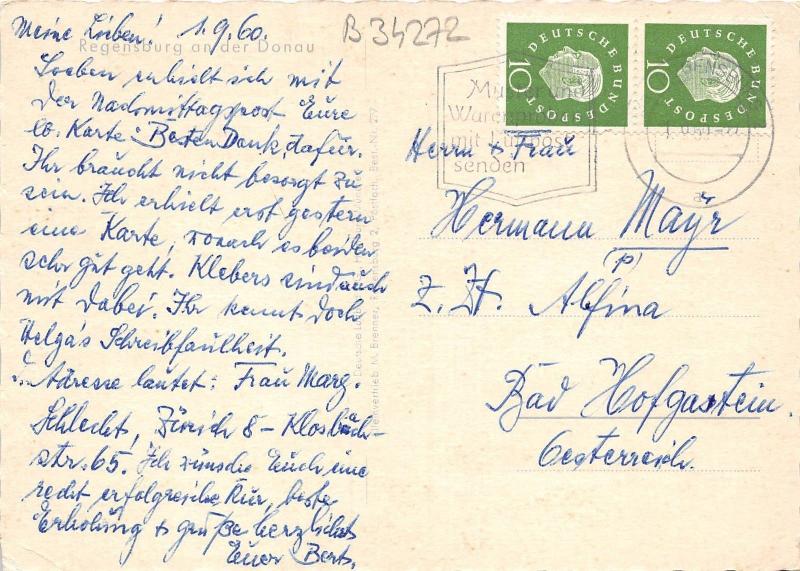 Meine Lieben! 1.9.60.
Regensburg an der Donau
Soeben erhielt ich mit
der Nachmittagpost Eure
lb. Karte. Besten Dank, dafür.
Ihr braucht nicht besorgt zu
sein. Ich erhielt erst gestern
eine Karte, wonach es beiden
sehr gut geht. Klebers sind auch
mit dabei. Ihr kennt doch
Helga's Schreibfaulheit.
Adresse lautet: Frau Marg.
Schlecht, Zürich 8 - Klosbach-
str. 65. Ich wünsche Euch eine
recht erfolgreiche Kur, beste
Erholung + grüße herzlichst
Euer Berts.
B 34272
DEUTSCHE BUNDESPOST
10
DEUTSCHE BUNDESPOST
10
Muster und
Warenproben
mit Luftpost
senden
Herrn + Frau
Hermann Mayr
(p)
z. Zt. Alpina
Bad Hofgastein.
Oesterreich.